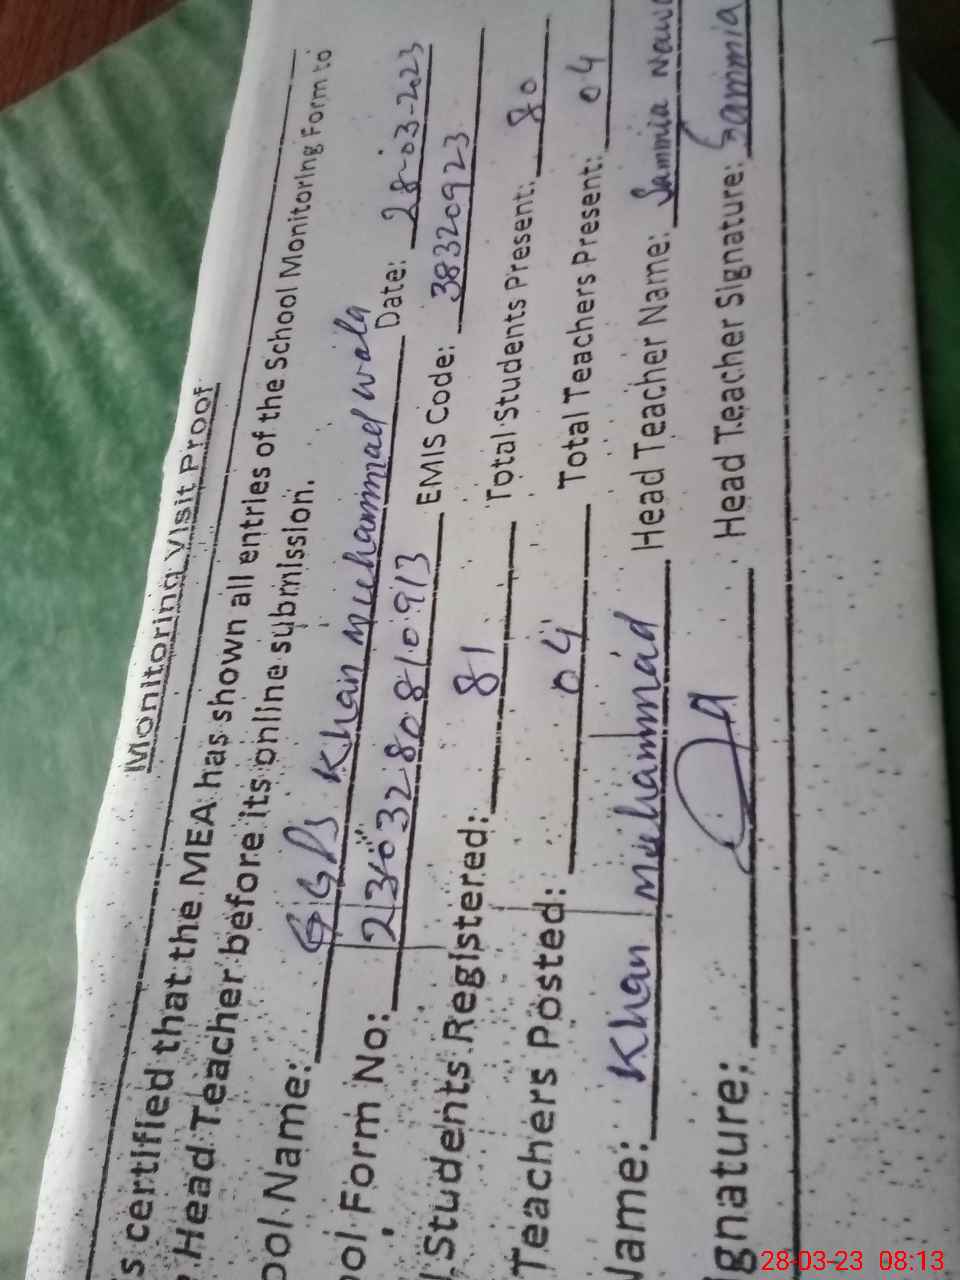 Monitoring Visit Proof
s certified that the MEA has shown all entries of the School Monitoring Form to
Head Teacher before its online submission.
ool Name: GGPS Khan Muhammad wala Date: 28-03-2023
ool Form No: EMIS Code: 38320923
Students Registered: 81 Total Students Present: 80
Teachers Posted: 04 Total Teachers Present: 04
Name: Khan Muhammad Head Teacher Name: Sammia Naw
gnature: Head Teacher Signature: Sammia
28-03-23 08:13